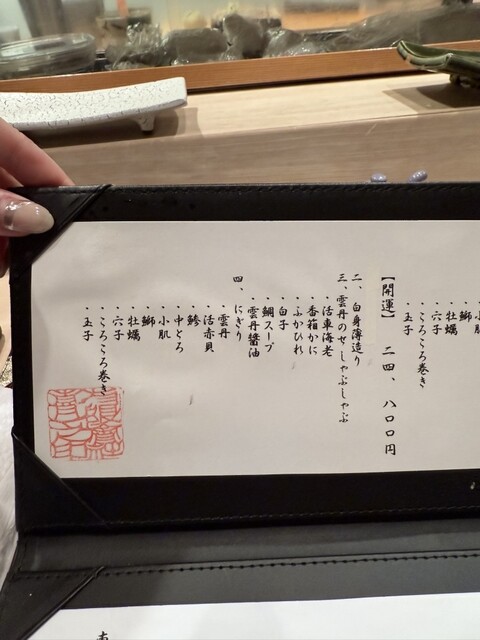 ・小肌
・鰤
・牡蠣
・穴子
・ころころ巻き
・玉子
【開運】 二四、八〇〇円
二、白身薄造り
三、雲丹のせしゃぶしゃぶ
・活車海老
・香箱かに
・ふかひれ
・白子
・鯛スープ
・雲丹醬油
四、にぎり
・雲丹
・活赤貝
・鯵
・中とろ
・小肌
・鰤
・牡蠣
・穴子
・ころころ巻き
・玉子